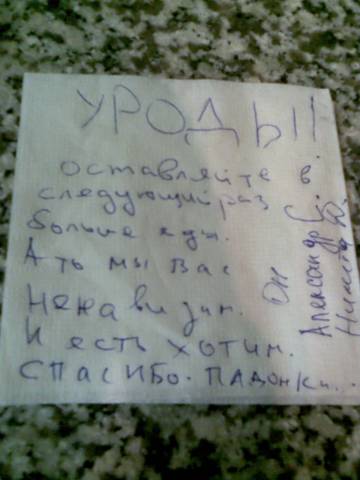 УРОДЫ!
оставляйте в
следующий раз
больше еды.
А то мы вас
ненавидим.
И есть хотим.
СПАСИБО. ПАДОНКИ...
Александр С.
Никита Ю.